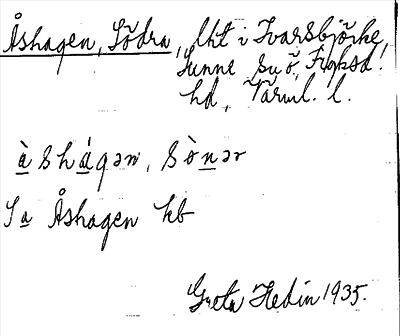 Åshagen, Södra, lht i Ivarsbjörke
Sunne sn ö, Fryksd.
hd, Värml. l.
àshágən, sònər
Sa Åshagen kb
Greta Hedin 1935.